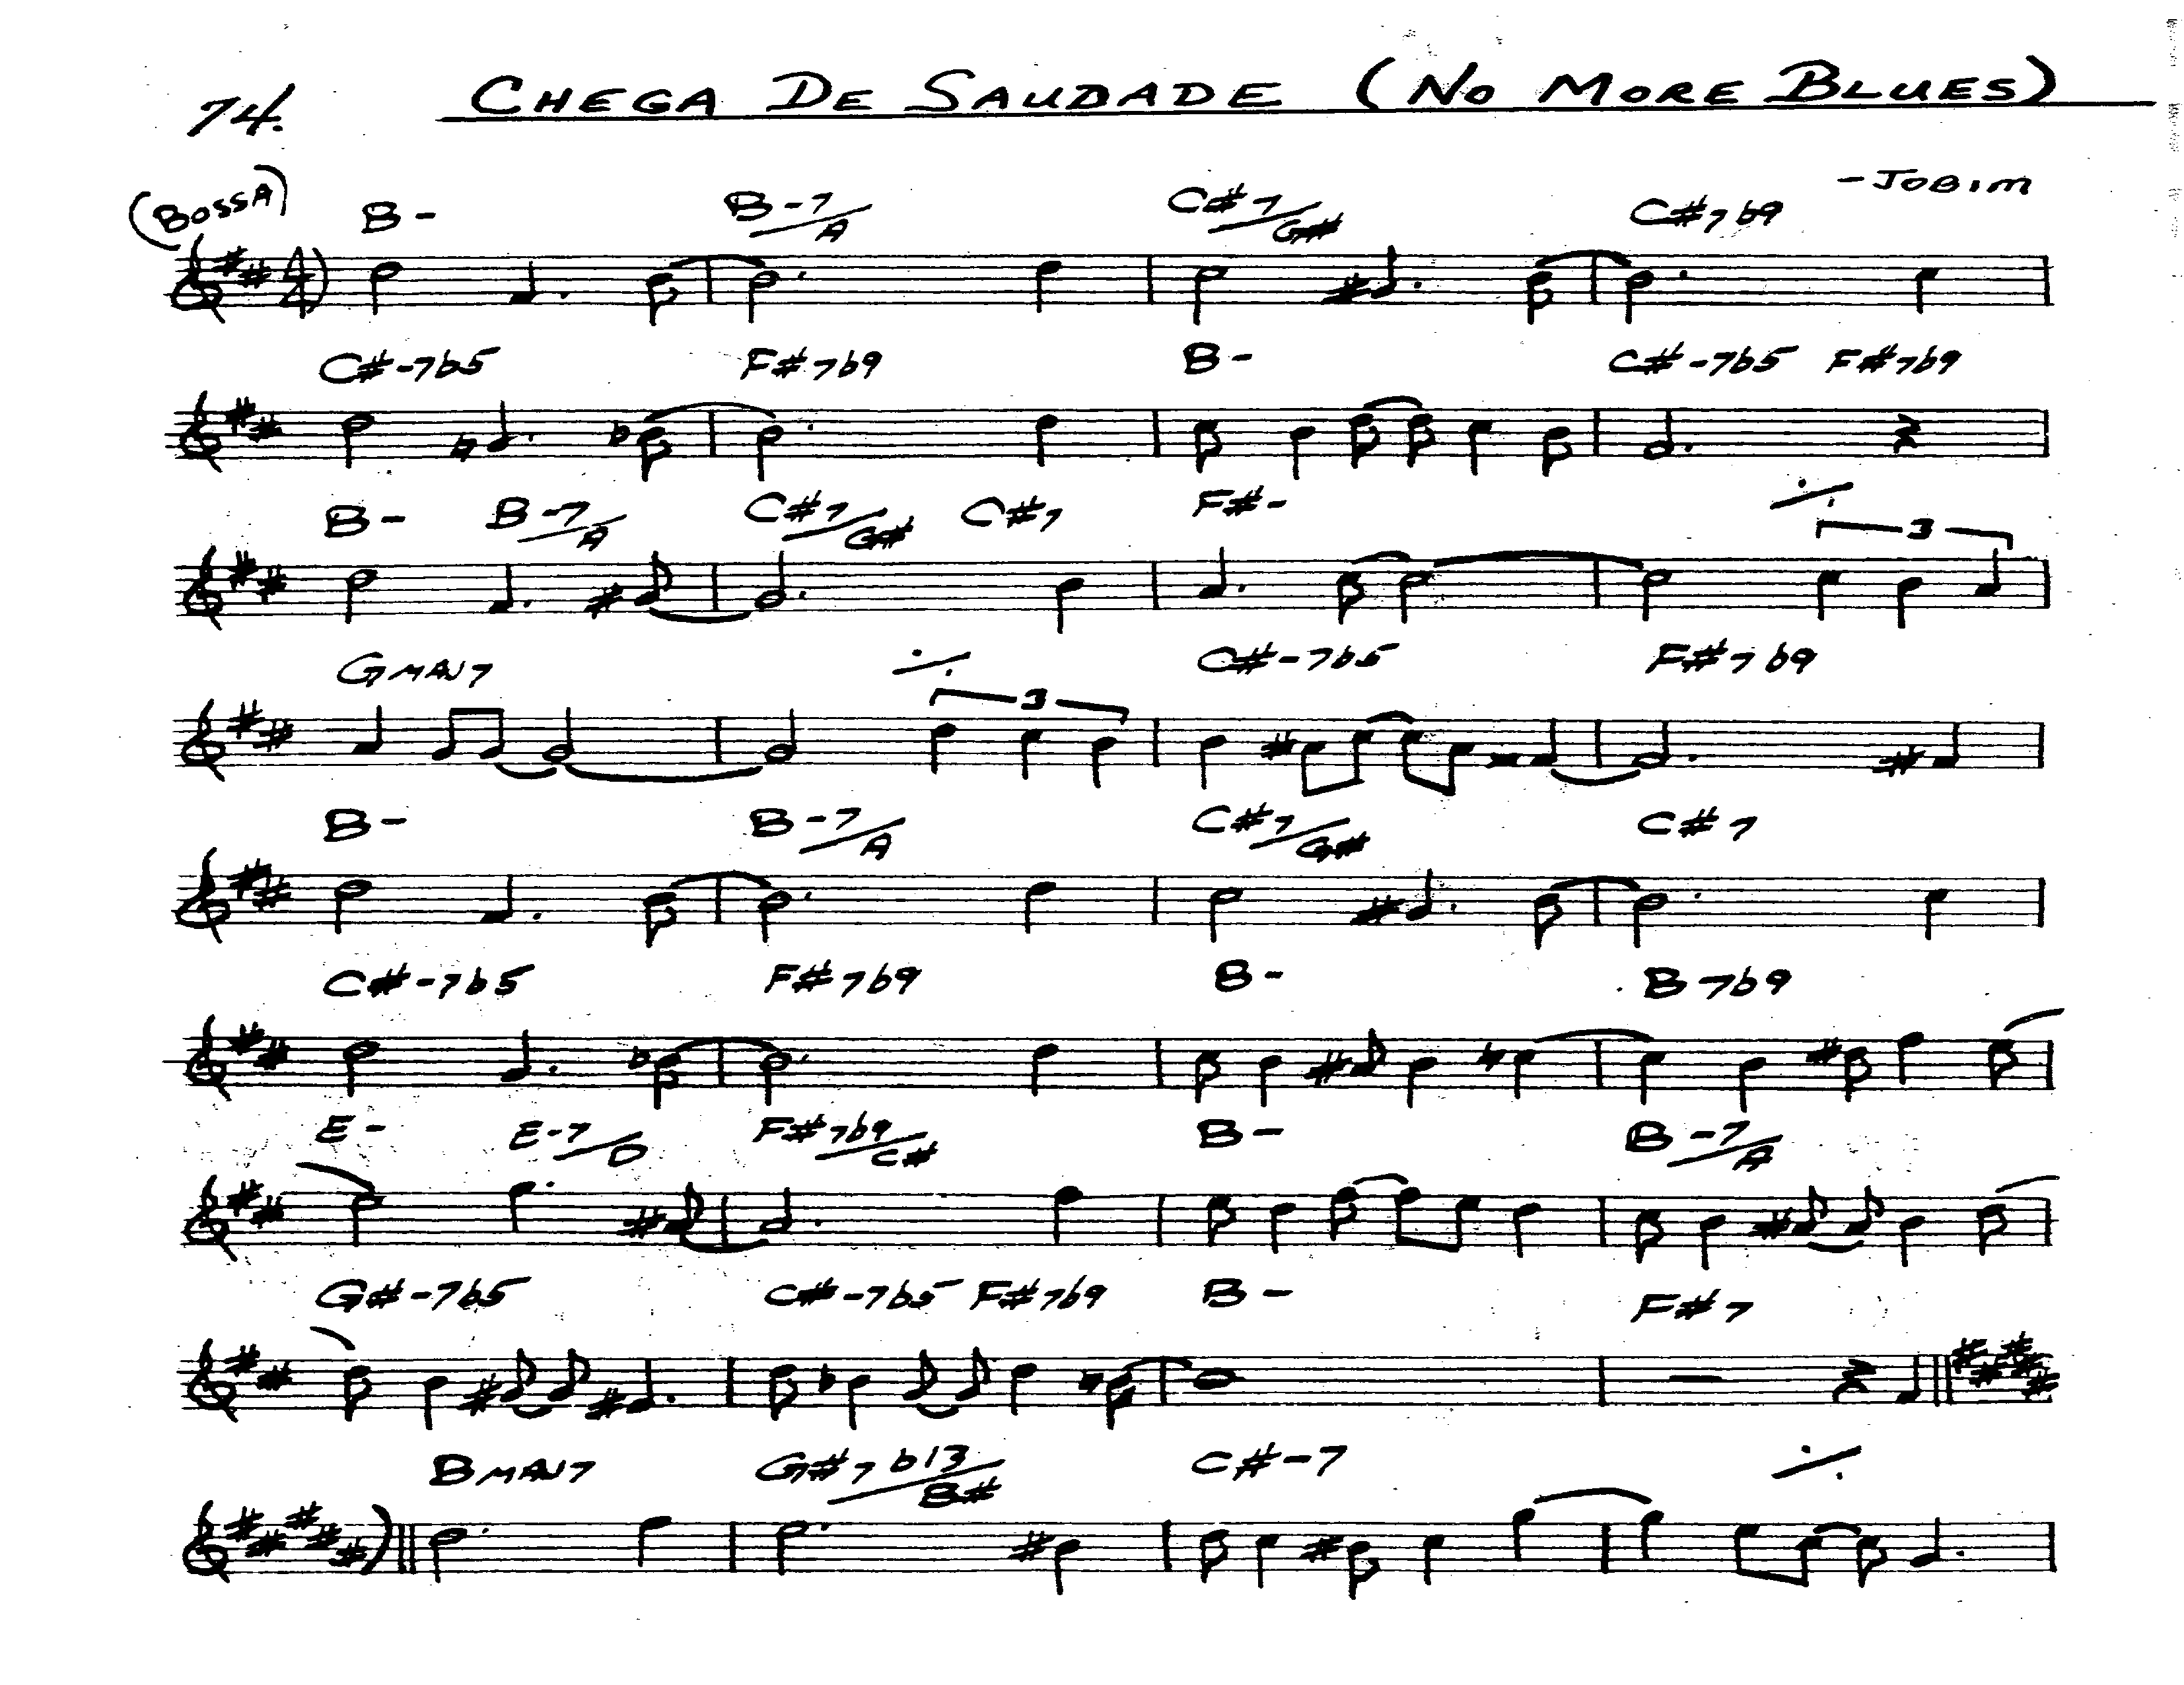 74. CHEGA DE SAUDADE (NO MORE BLUES)
-JOBIM
(BOSSA)
B- B-7/A C#7/G# C#7b9
4/4
C#-7b5 F#7b9 B- C#-7b5 F#7b9
B- B-7/A C#7/G# C#7 F#-
3
GMAJ7 C#-7b5 F#7b9
3
B- B-7/A C#7/G# C#7
C#-7b5 F#7b9 B- B7b9
E- E-7/D F#7b9/C# B- B-7/A
G#-7b5 C#-7b5 F#7b9 B- F#7
BMAJ7 G#7b13/B# C#-7